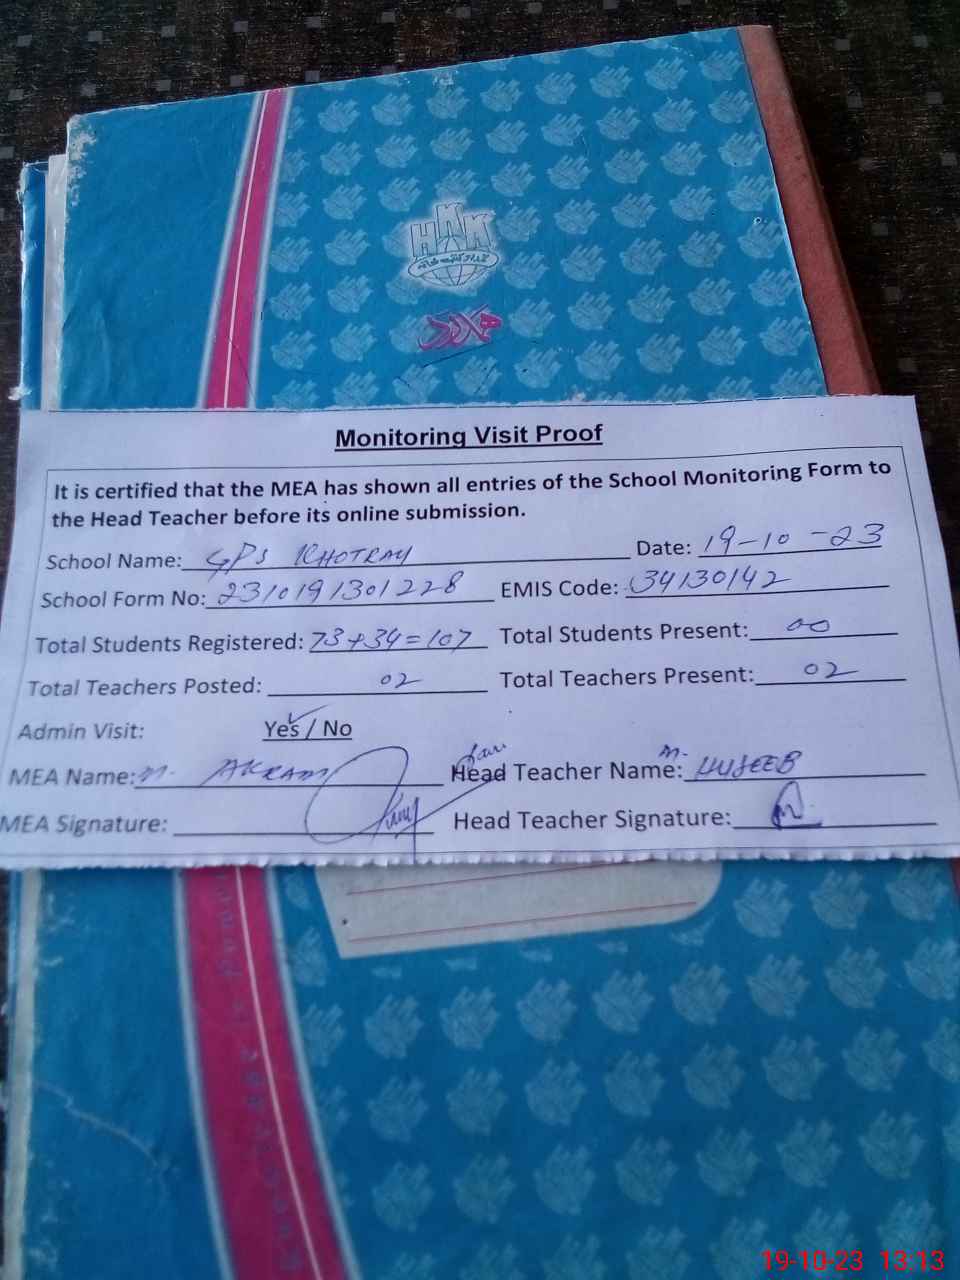 HKK
ہمدرد کتب خانہ
ہمدرد
Monitoring Visit Proof
It is certified that the MEA has shown all entries of the School Monitoring Form to
the Head Teacher before its online submission.
School Name: GPS KHOTRAY Date: 19-10-23
School Form No: 2310191301228 EMIS Code: 34130142
Total Students Registered: 73+34=107 Total Students Present: 00
Total Teachers Posted: 02 Total Teachers Present: 02
Admin Visit: Yes / No
MEA Name: M. AKRAM Head Teacher Name: M. HUSEEB
MEA Signature: Head Teacher Signature:
19-10-23 13:13